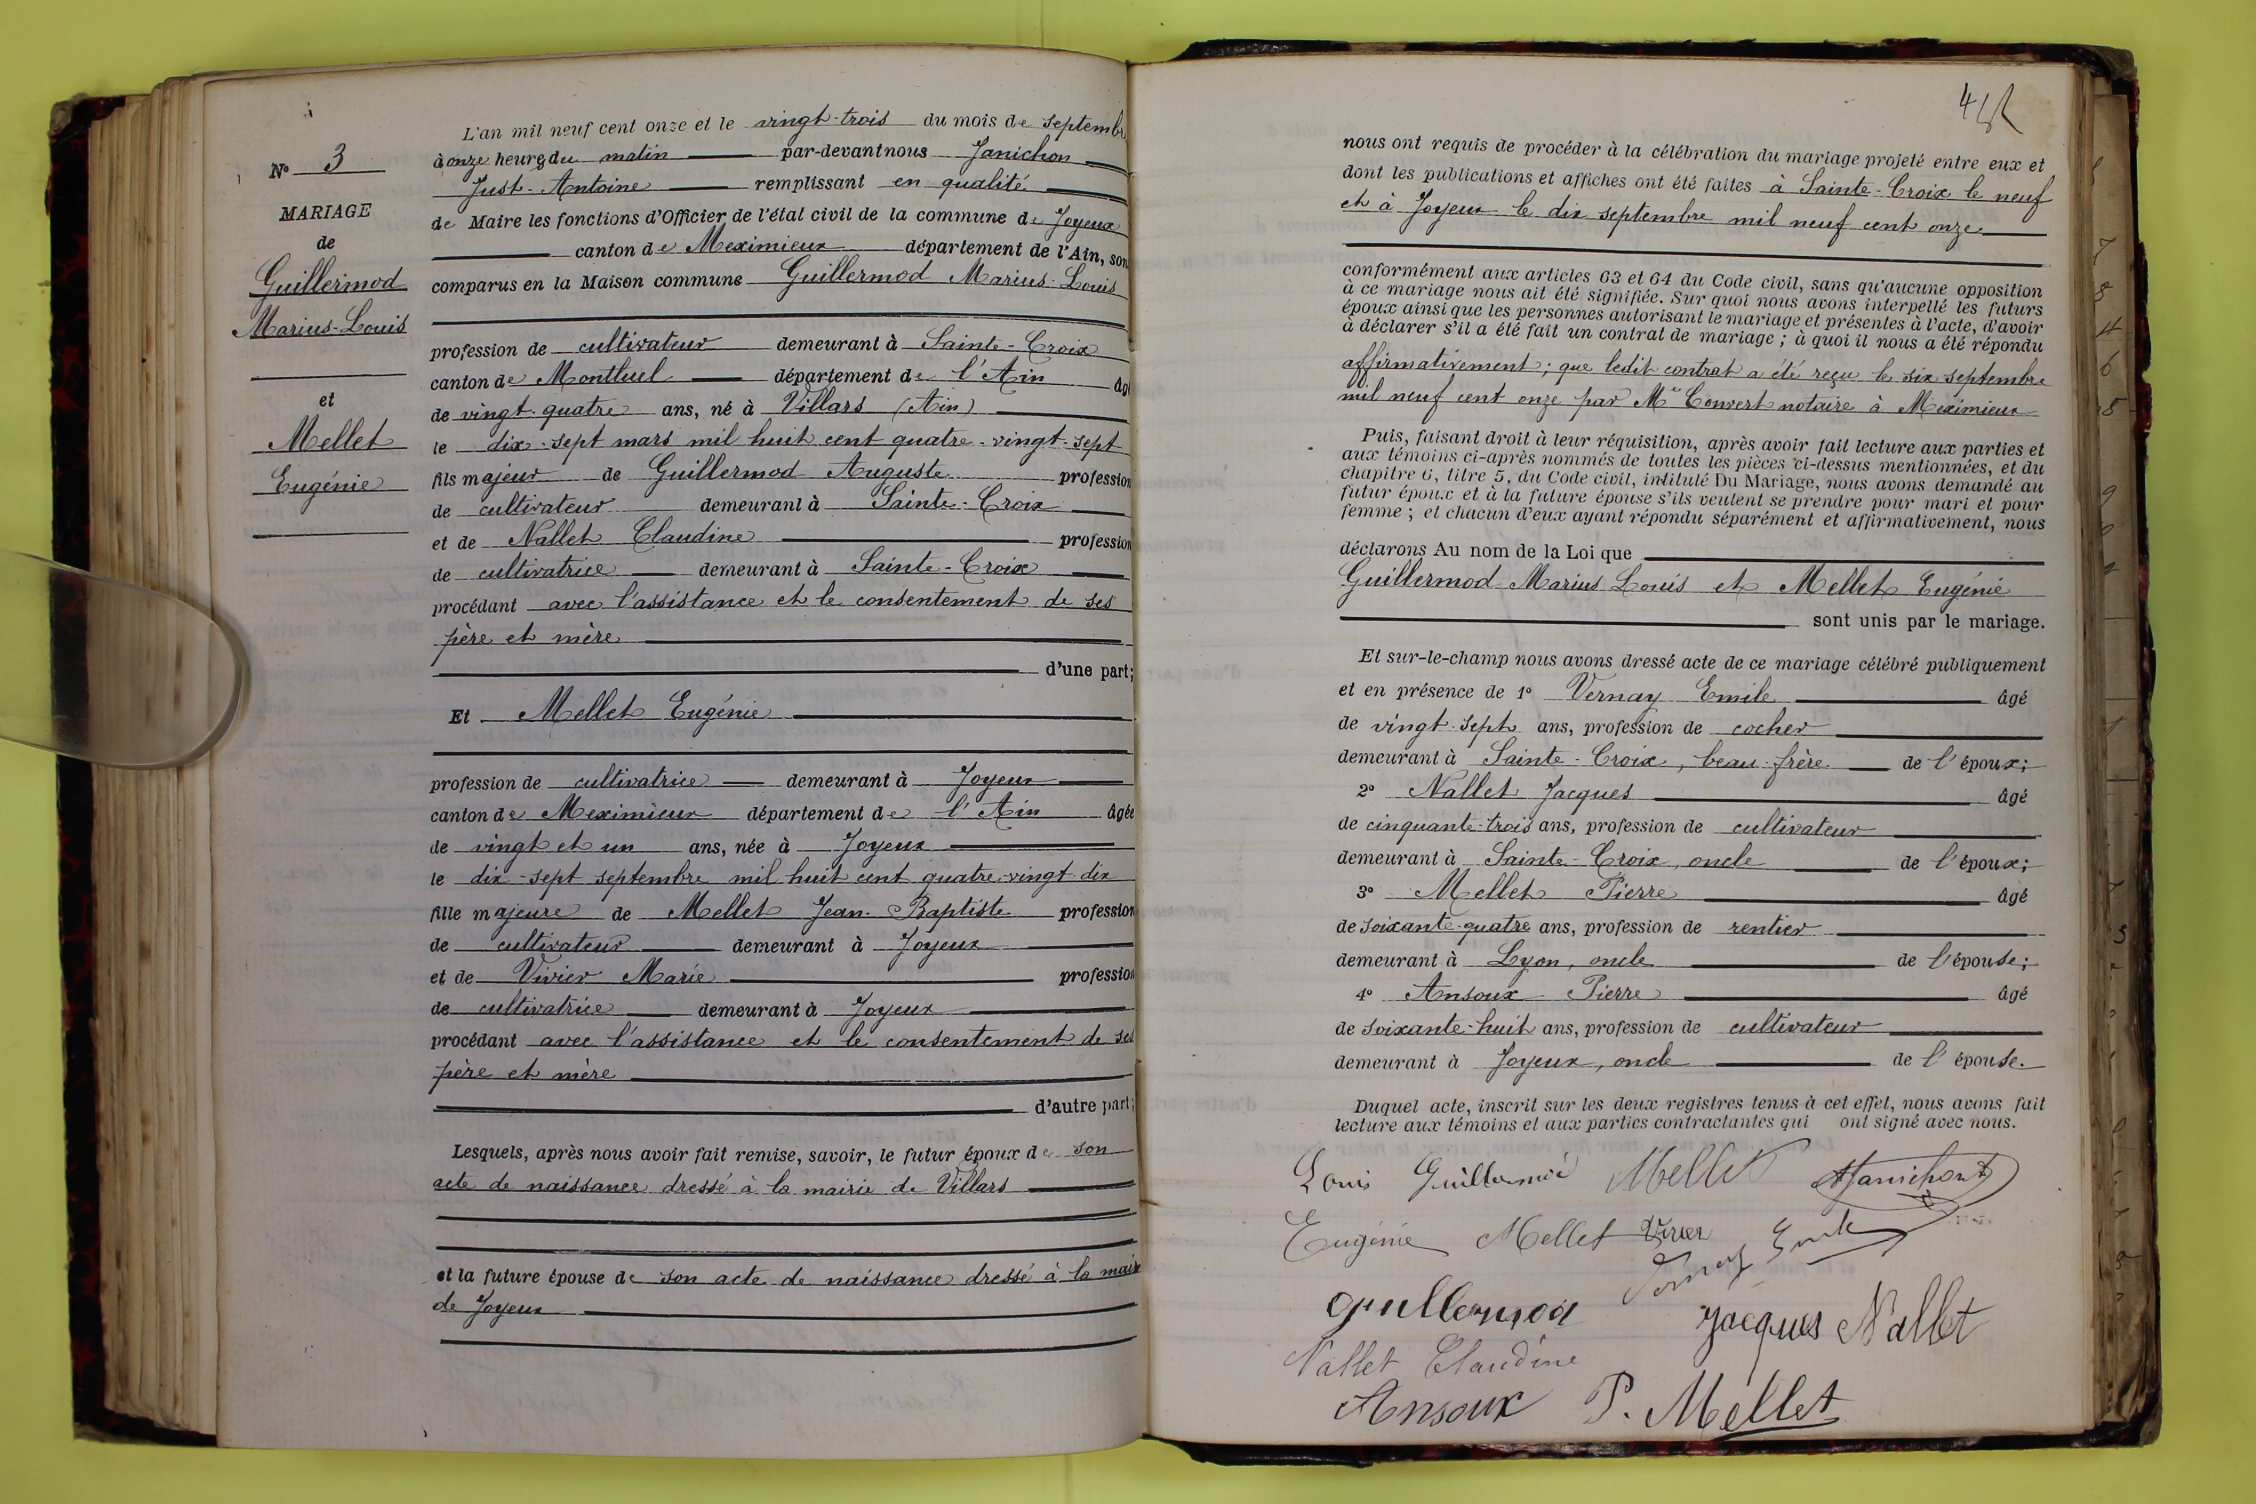 N° 3
MARIAGE
de
Guillermod
Marius-Louis
et
Mellet
Eugénie
L'an mil neuf cent onze et le vingt-trois du mois de septembre
à onze heures du matin par-devant nous Janichon
Just-Antoine remplissant en qualité
de Maire les fonctions d'Officier de l'état civil de la commune de Joyeux
canton de Meximieux département de l'Ain, son
comparus en la Maison commune Guillermod Marius-Louis
profession de cultivateur demeurant à Sainte-Croix
canton de Montluel département de l'Ain âgé
de vingt-quatre ans, né à Villars (Ain)
le dix-sept mars mil huit cent quatre-vingt-sept
fils majeur de Guillermod Auguste profession
de cultivateur demeurant à Sainte-Croix
et de Nallet Claudine profession
de cultivatrice demeurant à Sainte-Croix
procédant avec l'assistance et le consentement de ses
père et mère
d'une part;
Et Mellet Eugénie
profession de cultivatrice demeurant à Joyeux
canton de Meximieux département de l'Ain âgée
de vingt et un ans, née à Joyeux
le dix-sept septembre mil huit cent quatre-vingt-dix
fille majeure de Mellet Jean-Baptiste profession
de cultivateur demeurant à Joyeux
et de Vivier Marie profession
de cultivatrice demeurant à Joyeux
procédant avec l'assistance et le consentement de ses
père et mère
d'autre part;
Lesquels, après nous avoir fait remise, savoir, le futur époux de son
acte de naissance dressé à la mairie de Villars
et la future épouse de son acte de naissance dressé à la mairie
de Joyeux
nous ont requis de procéder à la célébration du mariage projeté entre eux et
dont les publications et affiches ont été faites à Sainte-Croix le neuf
et à Joyeux le dix septembre mil neuf cent onze
conformément aux articles 63 et 64 du Code civil, sans qu'aucune opposition
à ce mariage nous ait été signifiée. Sur quoi nous avons interpellé les futurs
époux ainsi que les personnes autorisant le mariage et présentes à l'acte, d'avoir
à déclarer s'il a été fait un contrat de mariage; à quoi il nous a été répondu
affirmativement; que ledit contrat a été reçu le six septembre
mil neuf cent onze par Me Convert notaire à Meximieux
Puis, faisant droit à leur réquisition, après avoir fait lecture aux parties et
aux témoins ci-après nommés de toutes les pièces ci-dessus mentionnées, et du
chapitre 6, titre 5, du Code civil, intitulé Du Mariage, nous avons demandé au
futur époux et à la future épouse s'ils veulent se prendre pour mari et pour
femme; et chacun d'eux ayant répondu séparément et affirmativement, nous
déclarons Au nom de la Loi que
Guillermod Marius Louis et Mellet Eugénie
sont unis par le mariage.
Et sur-le-champ nous avons dressé acte de ce mariage célébré publiquement
et en présence de 1° Vernay Emile âgé
de vingt-sept ans, profession de cocher
demeurant à Sainte-Croix, beau-frère de l'époux;
2° Nallet Jacques âgé
de cinquante-trois ans, profession de cultivateur
demeurant à Sainte-Croix, oncle de l'époux;
3° Mellet Pierre âgé
de soixante-quatre ans, profession de rentier
demeurant à Lyon, oncle de l'épouse;
4° Ansoux Pierre âgé
de soixante-huit ans, profession de cultivateur
demeurant à Joyeux, oncle de l'épouse.
Duquel acte, inscrit sur les deux registres tenus à cet effet, nous avons fait
lecture aux témoins et aux parties contractantes qui ont signé avec nous.
Louis Guillermod Mellet Janichon
Eugénie Mellet Vivier
Vernay Emile
Guillermod Jacques Nallet
Nallet Claudine
Ansoux P. Mellet